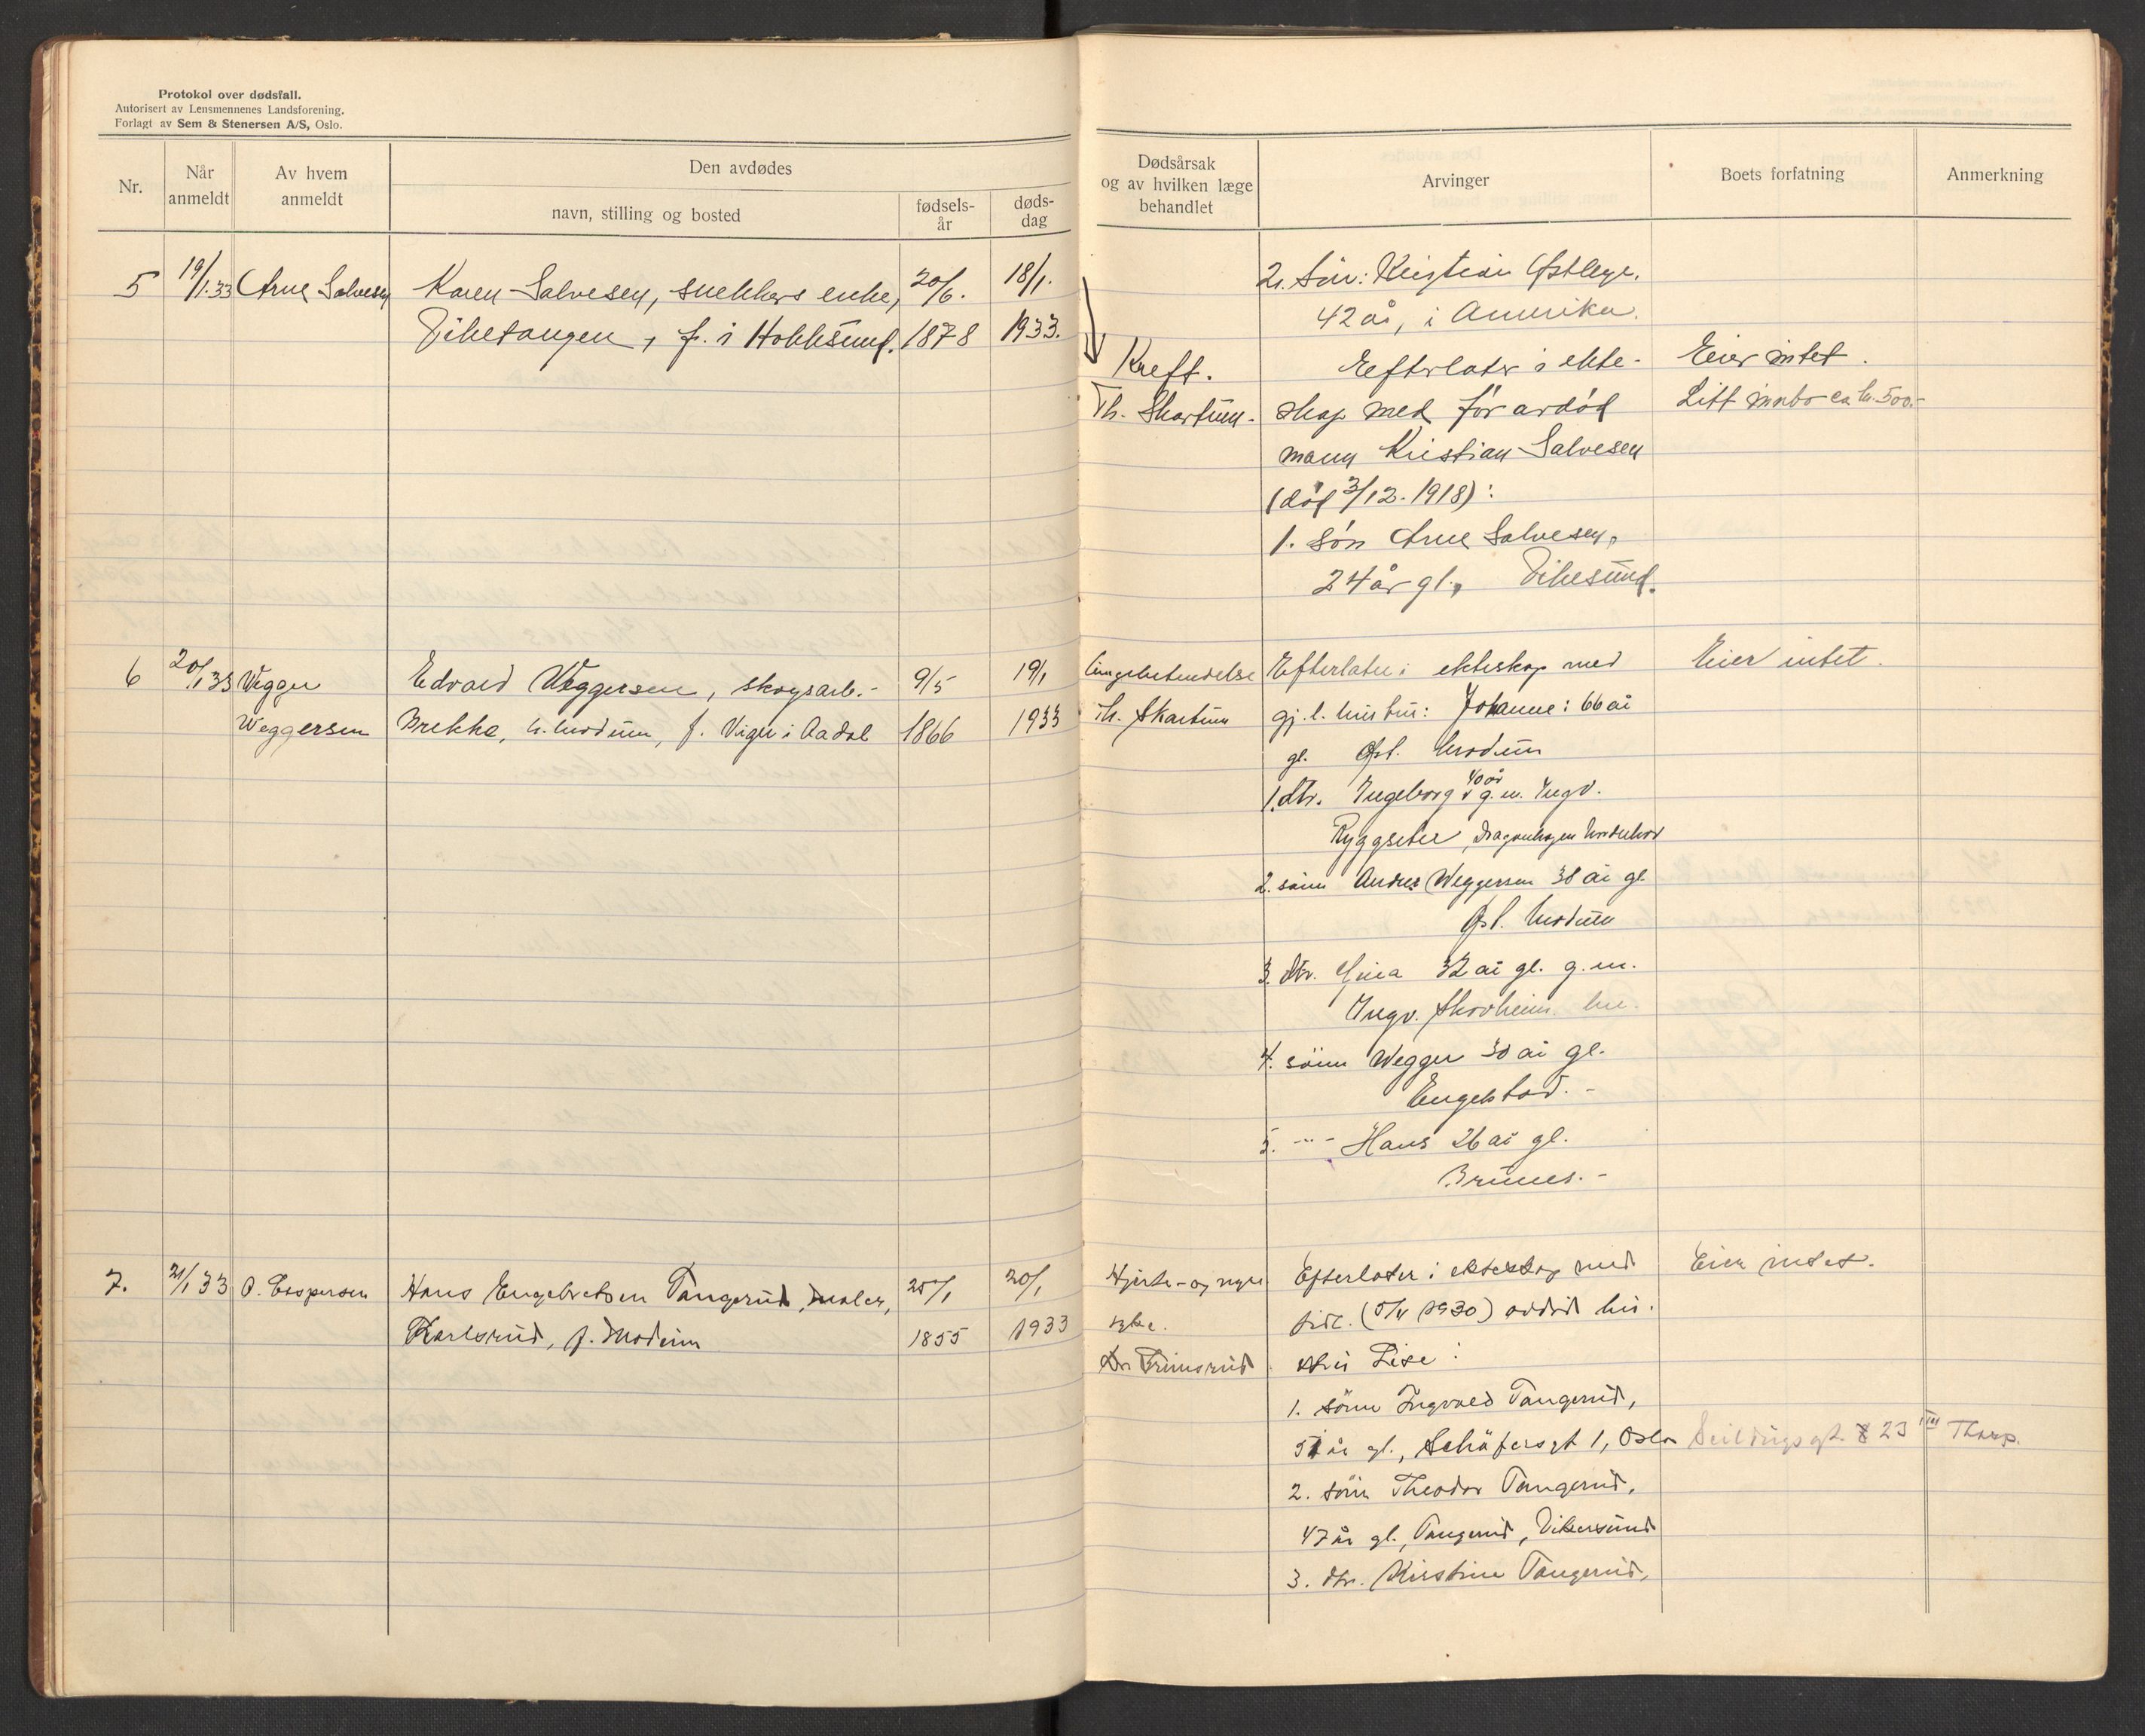 Protokol over dødsfall.
Autorisert av Lensmennenes Landsforening.
Forlagt av Sem & Stenersen A/S, Oslo.
Nr.
Når anmeldt
Av hvem anmeldt
Den avdødes
navn, stilling og bosted
fødsels-år
døds-dag
5 19/1.33 Arne Salvesen Karen Salvesen, snekkers enke, 20/6. 18/1.
Viketangen, f. i Hokksund. 1878 1933.
6 20/1 33 Vegger Edvard Weggersen, skogsarb.- 9/5 19/1
Weggersen Brekke, n. modum, f. Viger i Aadal 1866 1933
7. 21/1 33 O. Espersen Hans Engebretsen Tangerud, maler, 25/1 20/1
Karlsrud, f. Modum 1855 1933
Dødsårsak og av hvilken læge behandlet
Arvinger
Boets forfatning
Anmerkning
2. Sön: Kristian
42 år, i Amerika.
Kreft. Eefterlater i ekte- Eier intet.
Th. Skartum. skap med før avdød Litt innbo ca kr. 500.-
mann Kristian Salvesen
(død 3/12-1918):
1. søn Arne Salvesen,
24 år gl., Vikesund.
Lungebetendelse Efterlater i ekteskap med Eier intet.
Th. Skartum gj. l. hustru: Johanne: 66 år
gl. Øst. Modum
1. dtr. Ingeborg 40 år g. m. Ingv.
Ryggseter,
2. sönn Andres Weggersen 38 år gl.
Øst. Modum
3. dtr. 32 år gl. g. m.
Ingv. Skovheim
4. sönn Wegger 30 år gl.
Engelstad.-
5. -"- Hans 26 år gl.
Brunes.-
Hjerte- og nyre Efterlater i ekteskap med Eier intet.
syke. tidl. (5/5 1930) avdød hu-
Dr. Trimsrud stru Lise:
1. sönn Ingvald Tangerud,
51 år gl., Schäfersgt 1, Oslo Seildugsgt. 23 III Thorp.
2. sönn Theodor Tangerud,
47 år gl., Tangerud, Vikersund
3. dtr. Kirstine Tangerud,